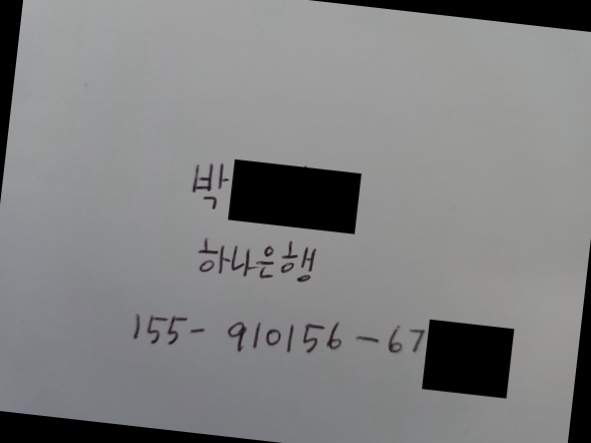 박
하나은행
155-910156-67